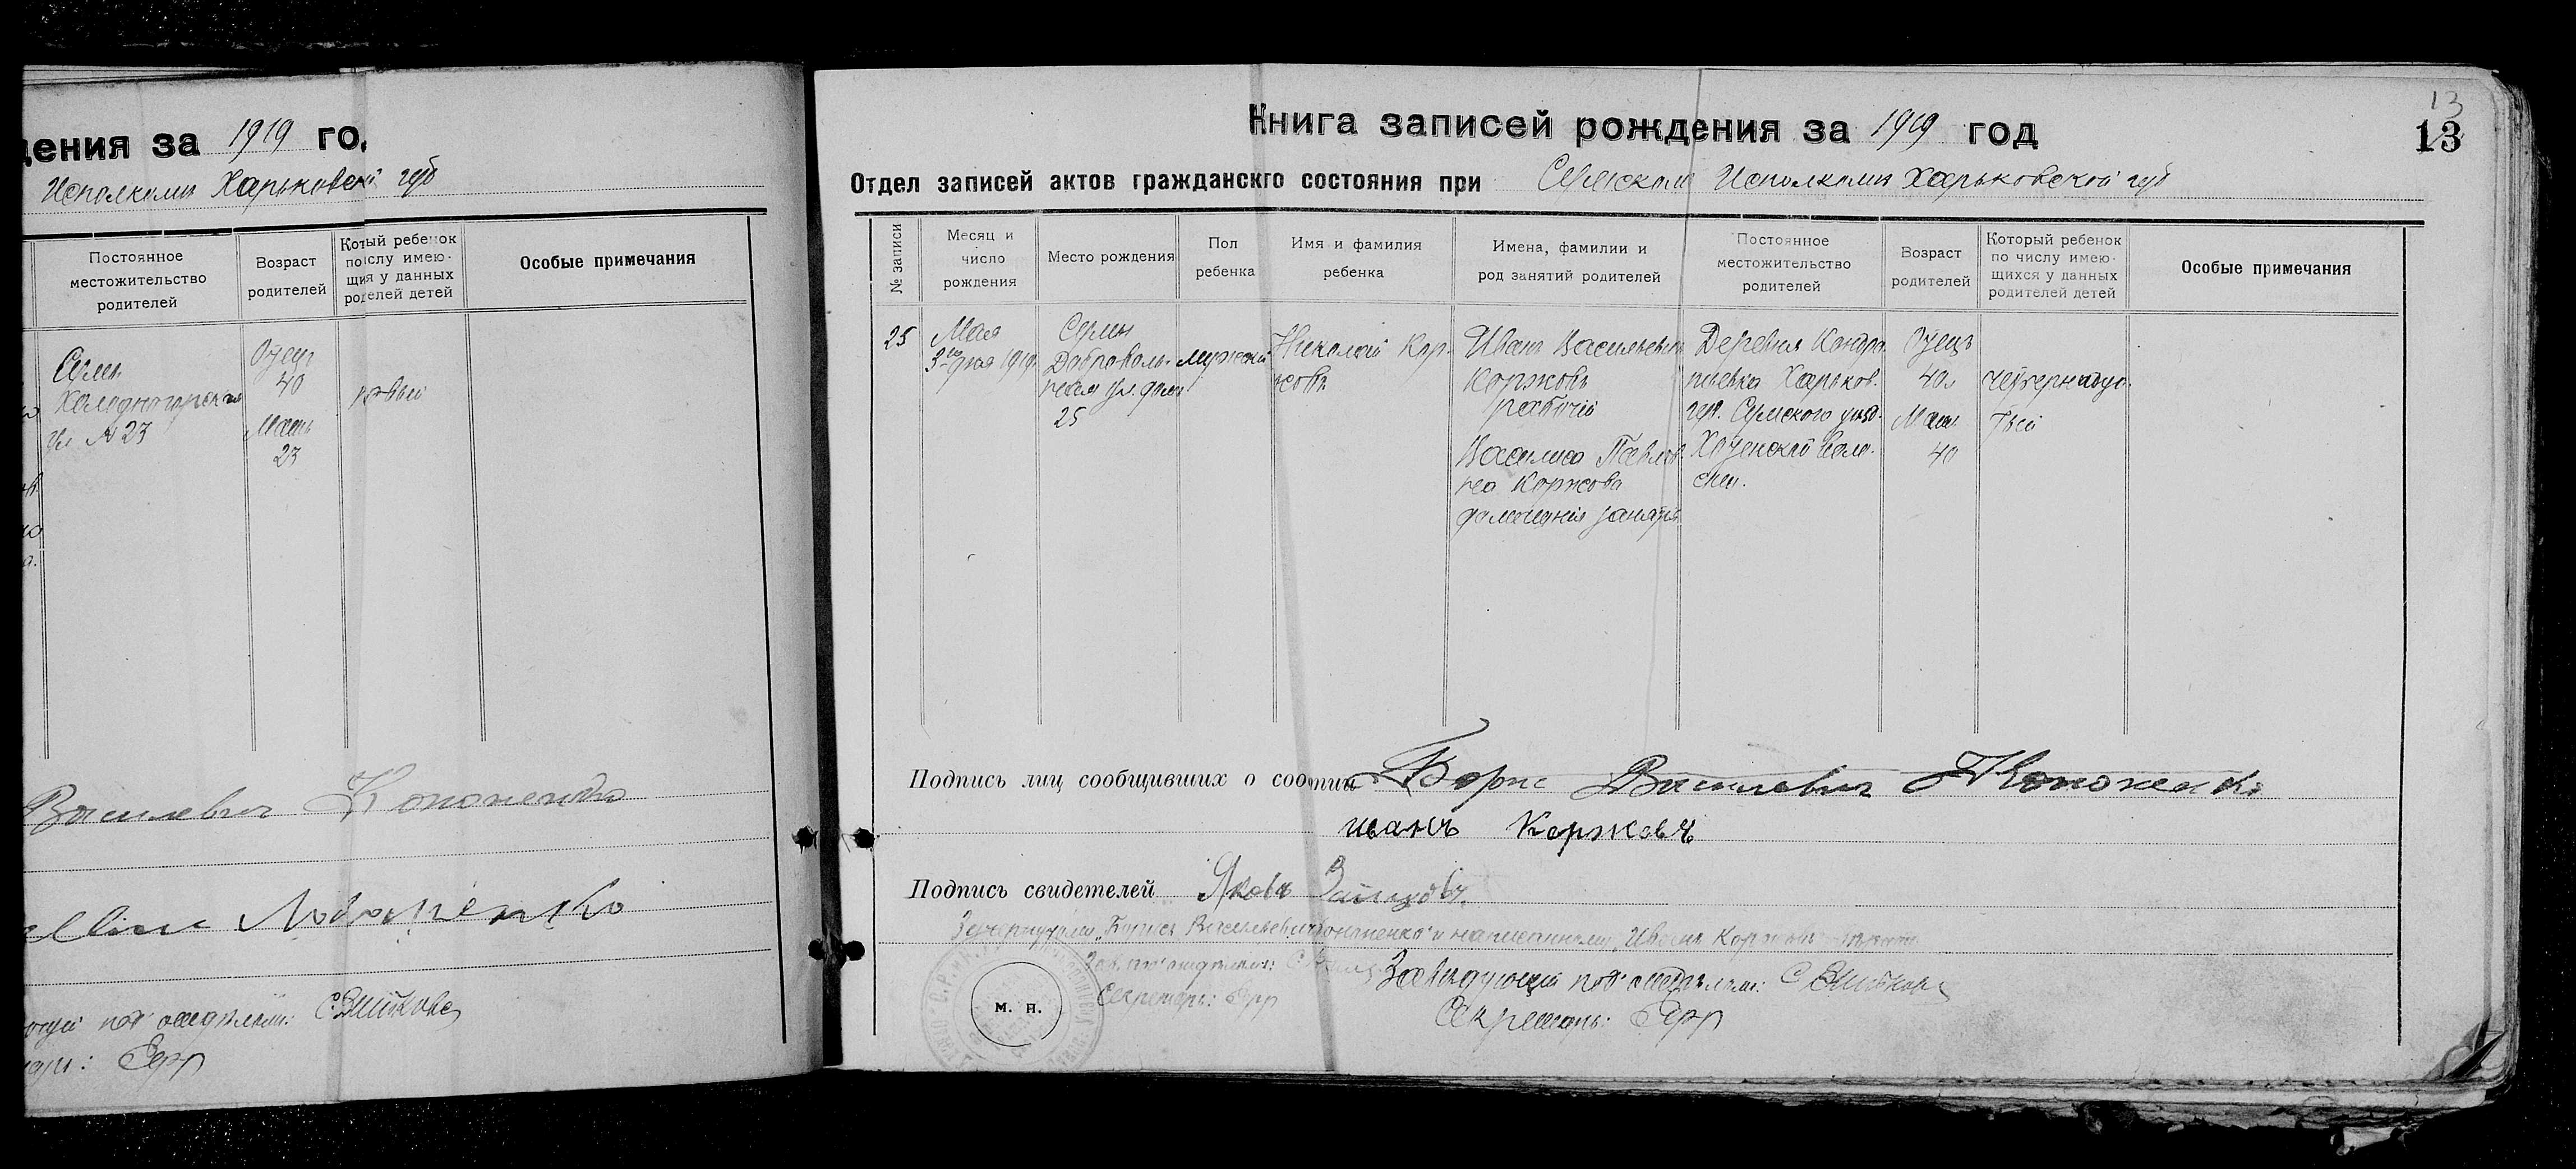 дения за 1919 го
Исполкомъ Харьковской губ
Постоянное
местожительство
родителей
Возраст
родителей
ый ребенок
слу имею-
щи я у данных
ро елей детей
Особые примечания
Сумы
Холодногорская
ул № 23
Отецъ
40
Мать
23
рвый
Василевич Кононенко
отделом: С.
Книга записей рождения за 1919 год
13
13
Отдел записей актов гражданскго состояния при Сумском Исполкомъ Харьковской губ
№ записи
Месяц и
число
рождения
Место рождения
Пол
ребенка
Имя и фамилия
ребенка
Имена, фамилии и
род занятий родителей
Постоянное
местожительство
родителей
Возраст
родителей
Который ребенок
по числу имею-
щихся у данных
родителей детей
Особые примечания
25
Мая
3го дня 1919
Сумы
Доброволь-
ная ул. домъ
25
мужской
Николай Кор-
жовъ
Иванъ Васильевич
Коржовъ
рабочий
Василиса Павлов-
на Коржова
домашния занятия
Деревня Кондра-
тьевка Харьков.
губ. Сумского уезд.
Хотенской воло-
сти.
Отецъ
40 л
Мать
40
четырнадца-
тый
Подпись лиц сообщивших о событии Борис Василевич Кононенко
иванъ Коржовъ
Подпись свидетелей Яковъ Зайцовъ.
Зачеркнутому „Борисъ Васильевич Кононенко" и написанному „Иванъ Коржовъ"
Секретарь:
м. п.
Заведующий отделом: С
Секретарь: